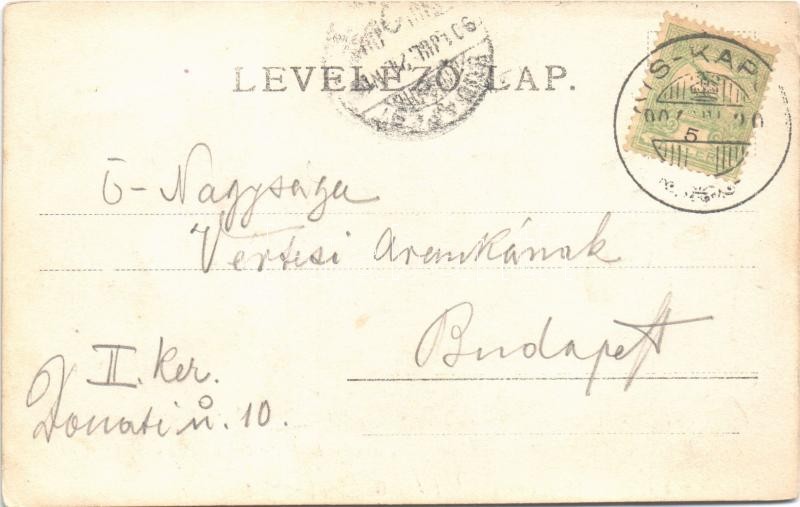 LEVELEZŐ LAP.
5
Ő-Nagysága
Vértesi Arankának
Budapest
II. Ker.
Donati u. 10.